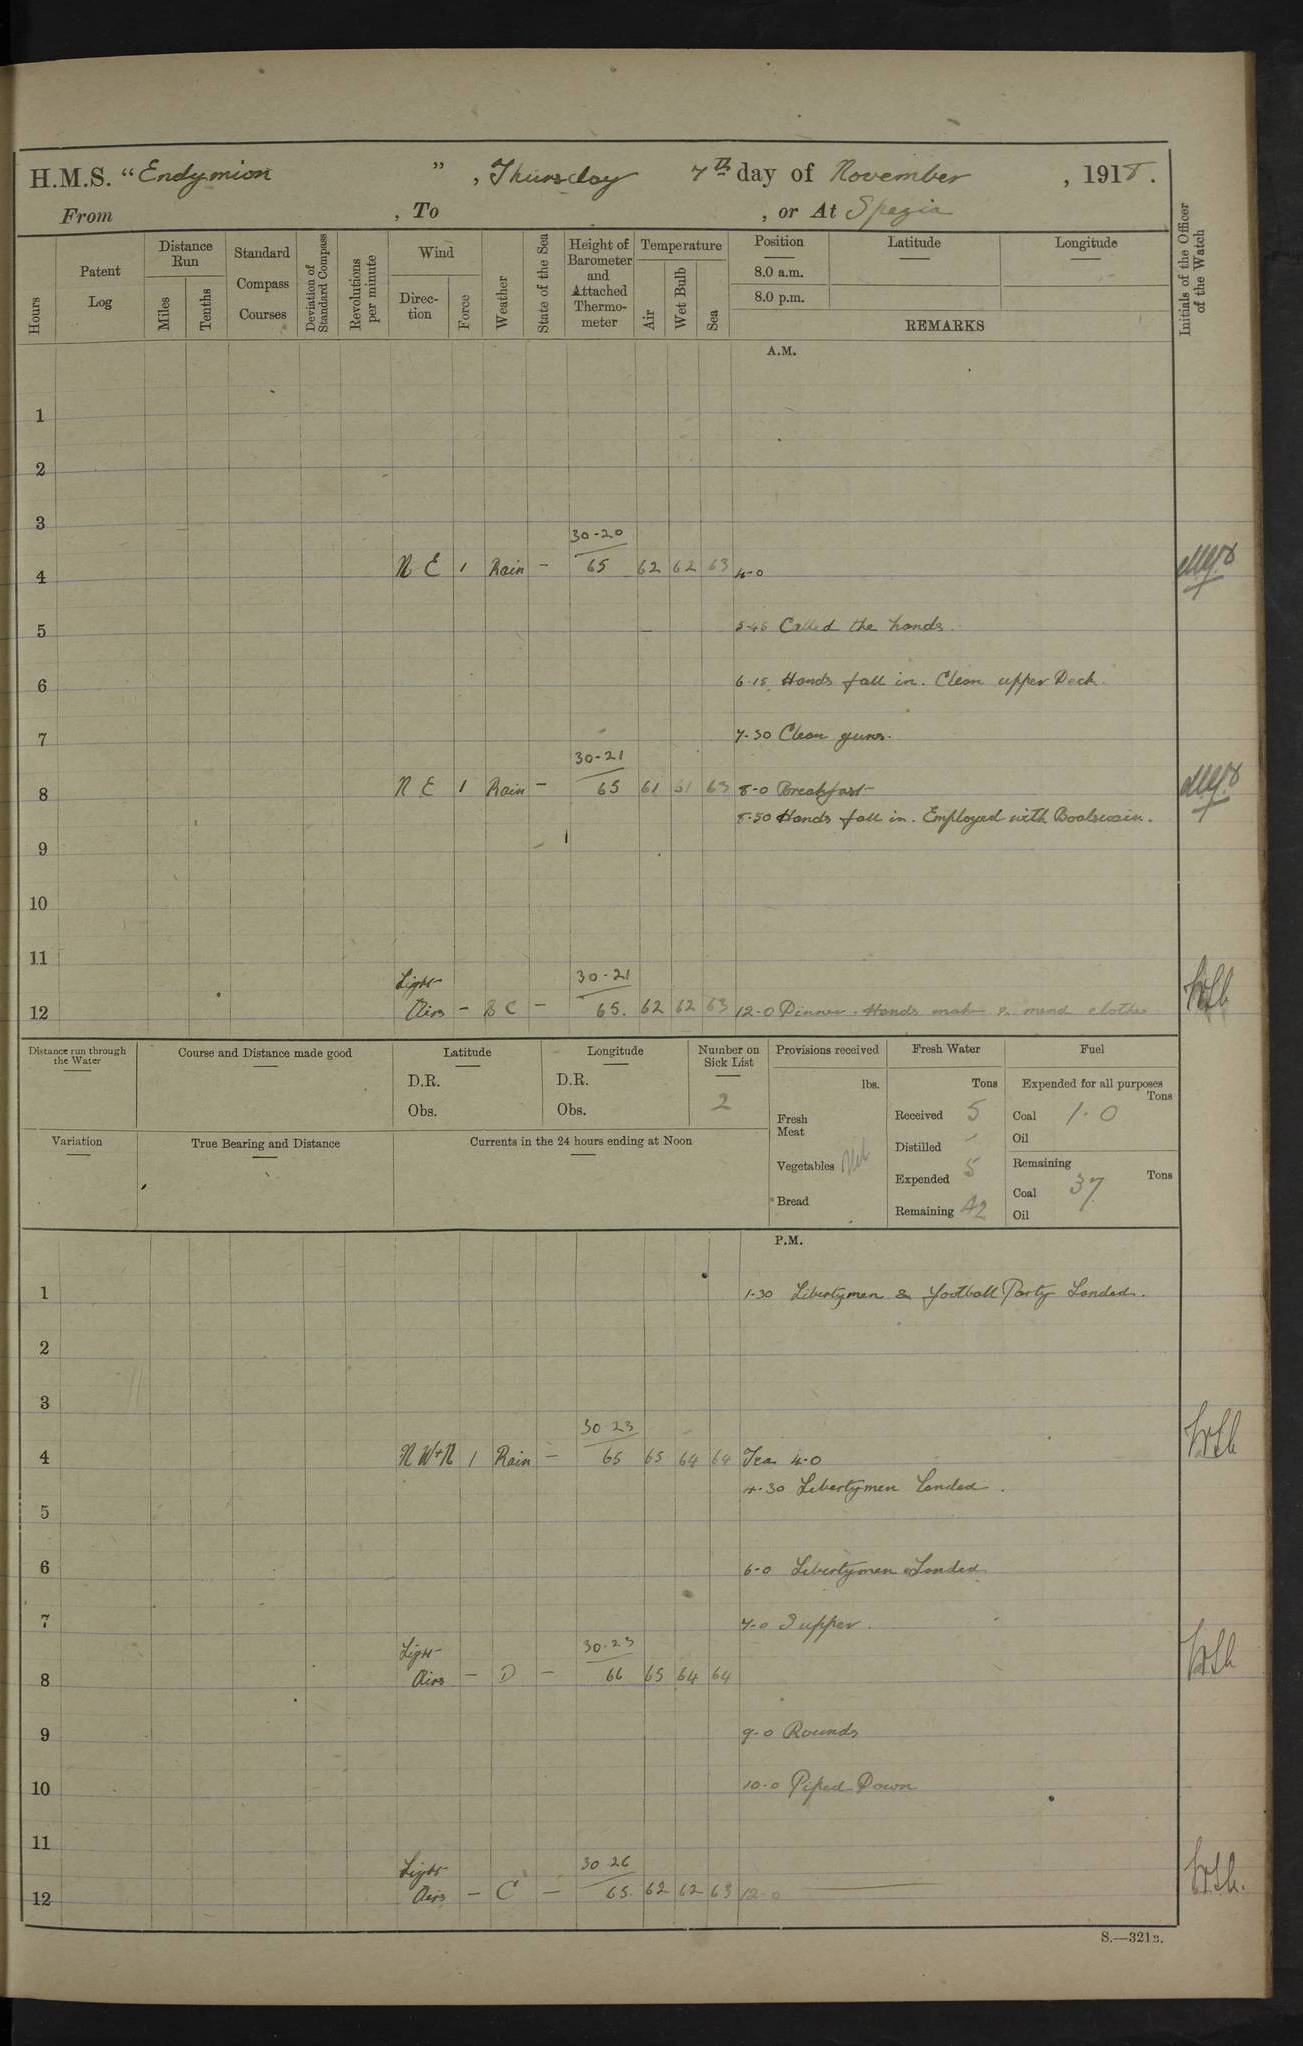 H.M.S. “Endymion ”, Thursday 7th day of November, 1918.
From , To , or At Spezia
Hours
Patent Log
Distance Run
Miles
Tenths
Standard Compass Courses
Deviation of Standard Compass
Revolutions per minute
Wind
Direc-tion
Force
Weather
State of the Sea
Height of Barometer and Attached Thermo-meter
Temperature
Air
Wet Bulb
Sea
Position
8.0 a.m.
8.0 p.m.
Latitude
Longitude
REMARKS
Initials of the Officer of the Watch
A.M.
1
2
3
30-20
4 N E 1 Rain - 65 62 62 63 4-0
5 5-45 Called the hands.
6 6-15 Hands fall in. Clean upper Deck.
7 7-30 Clean guns.
30-21
8 N E 1 Rain - 65 61 61 63 8-0 Breakfast
8-50 Hands fall in. Employed with Boatswain.
9
10
11
Light 30-21
12 Airs - B C - 65. 62 62 63 12-0 Dinner. Hands make & mend clothes
Distance run through the Water
Course and Distance made good
Latitude
D.R.
Obs.
Longitude
D.R.
Obs.
Number on Sick List
2
Provisions received
lbs.
Fresh Meat
Vegetables Nil
Bread
Fresh Water
Tons
Received 5
Distilled -
Expended 5
Remaining 42
Fuel
Expended for all purposes
Tons
Coal 1.0
Oil
Remaining
Tons
Coal 37
Oil
Variation
True Bearing and Distance
Currents in the 24 hours ending at Noon
P.M.
1 1-30 Libertymen & football Party Landed.
2
3
30-23
4 N W+N 1 Rain - 65 65 64 64 Tea 4-0
4-30 Libertymen landed.
5
6 6-0 Libertymen Landed
7 7-0 Supper.
Light 30-23
8 Airs - D - 66 65 64 64
9 9-0 Rounds
10 10-0 Piped Down
11
Light 30 26
12 Airs - C - 65. 62 62 63 12-0
S.—321B.